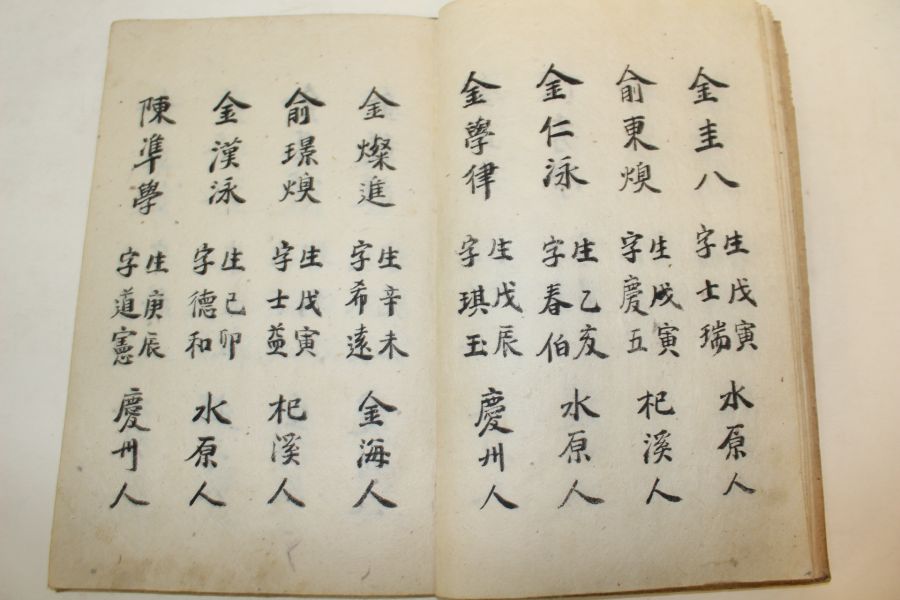 金圭八 字士瑞 生戊寅 水原人
俞東煥 字慶五 生戊寅 杞溪人
金仁泳 字春伯 生乙亥 水原人
金學律 字琪玉 生戊辰 慶州人
金燦進 字希遠 生辛未 金海人
俞璟煥 字士益 生戊寅 杞溪人
金漢泳 字德和 生己卯 水原人
陳準學 字道憲 生庚辰 慶州人